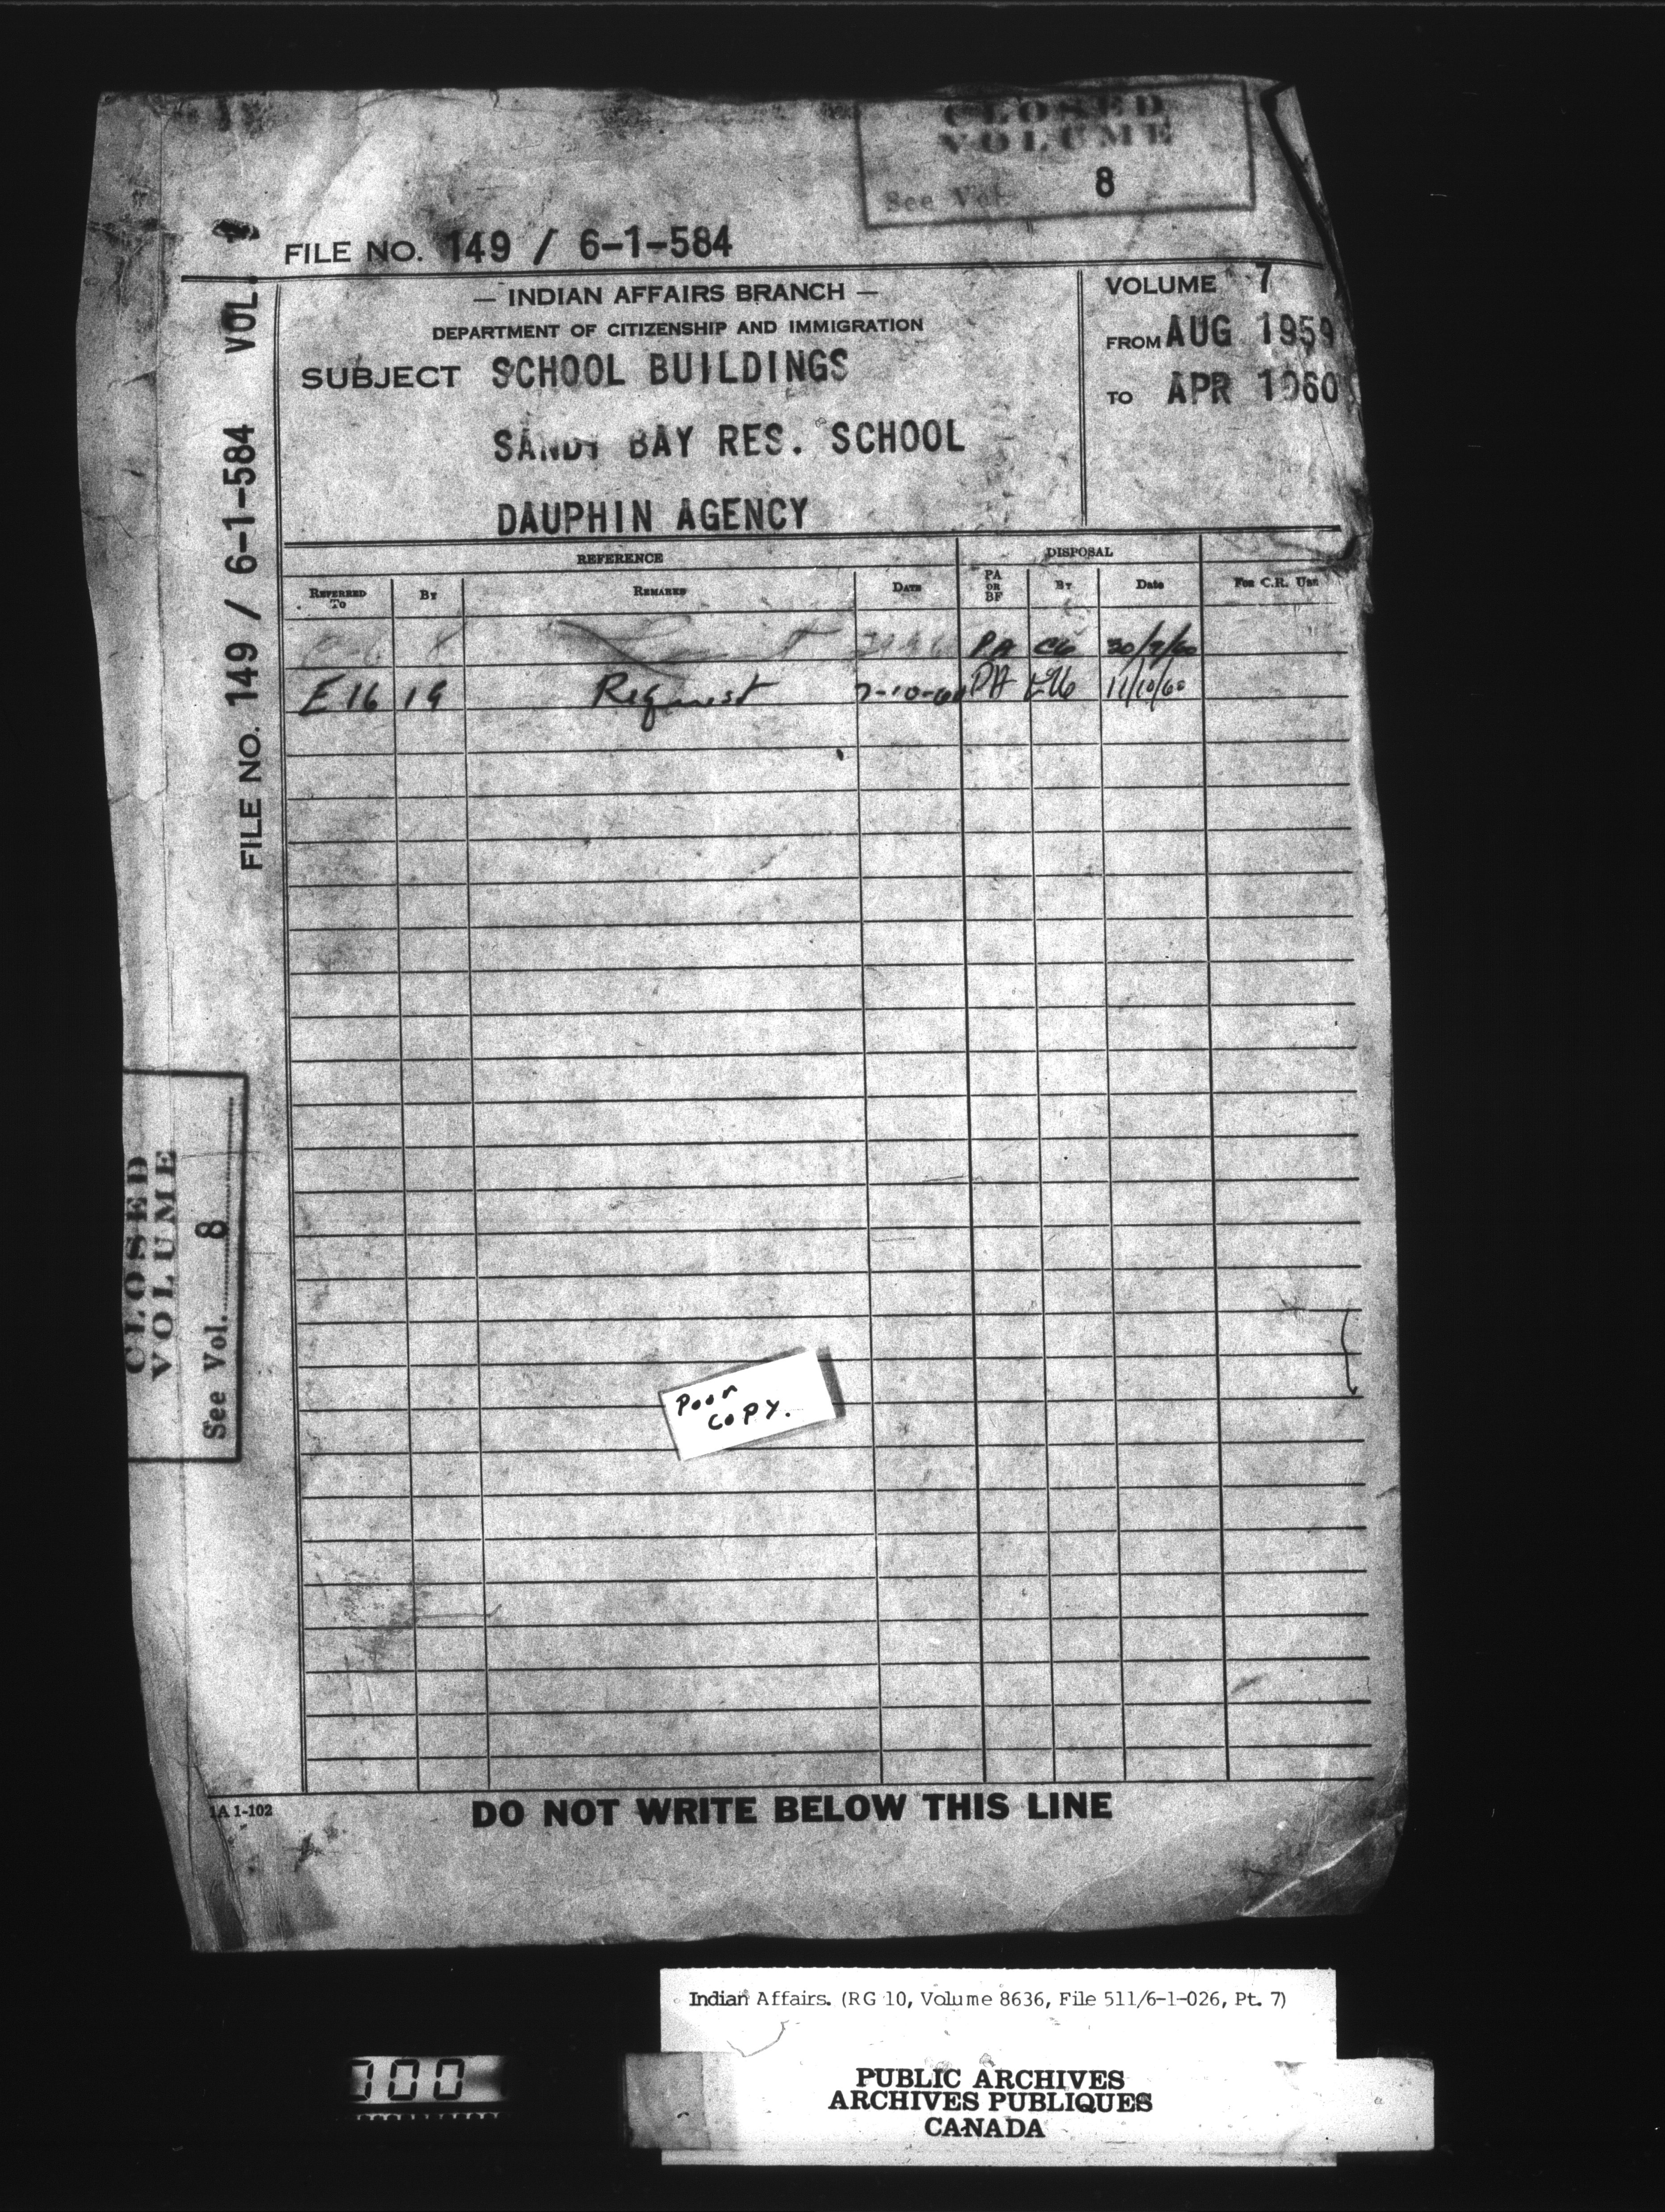 CLOSED
VOLUME
See Vol. 8
FILE NO. 149 / 6-1-584
— INDIAN AFFAIRS BRANCH —
DEPARTMENT OF CITIZENSHIP AND IMMIGRATION
SUBJECT SCHOOL BUILDINGS
SANDY BAY RES. SCHOOL
DAUPHIN AGENCY
VOLUME 7
FROM AUG 1959
TO APR 1960
FILE NO. 149 / 6-1-584 VOL.
REFERENCE
DISPOSAL
REFERRED TO
BY
REMARKS
DATE
PA OR BF
BY
DATE
FOR C.R. USE
PA C6 30/9/60
E16 19 Request 7-10-60 PA E16 11/10/60
CLOSED
VOLUME
See Vol. 8
Poor
COPY.
1A 1-102
DO NOT WRITE BELOW THIS LINE
Indian Affairs. (RG 10, Volume 8636, File 511/6-1-026, Pt. 7)
PUBLIC ARCHIVES
ARCHIVES PUBLIQUES
CANADA